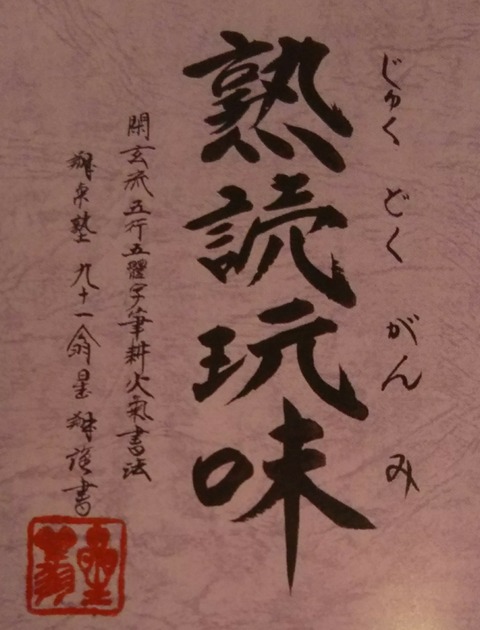 じゅくどくがんみ
熟読玩味
閑玄流五行五體字筆耕火氣書法
泉塾 九十一翁星 謹書